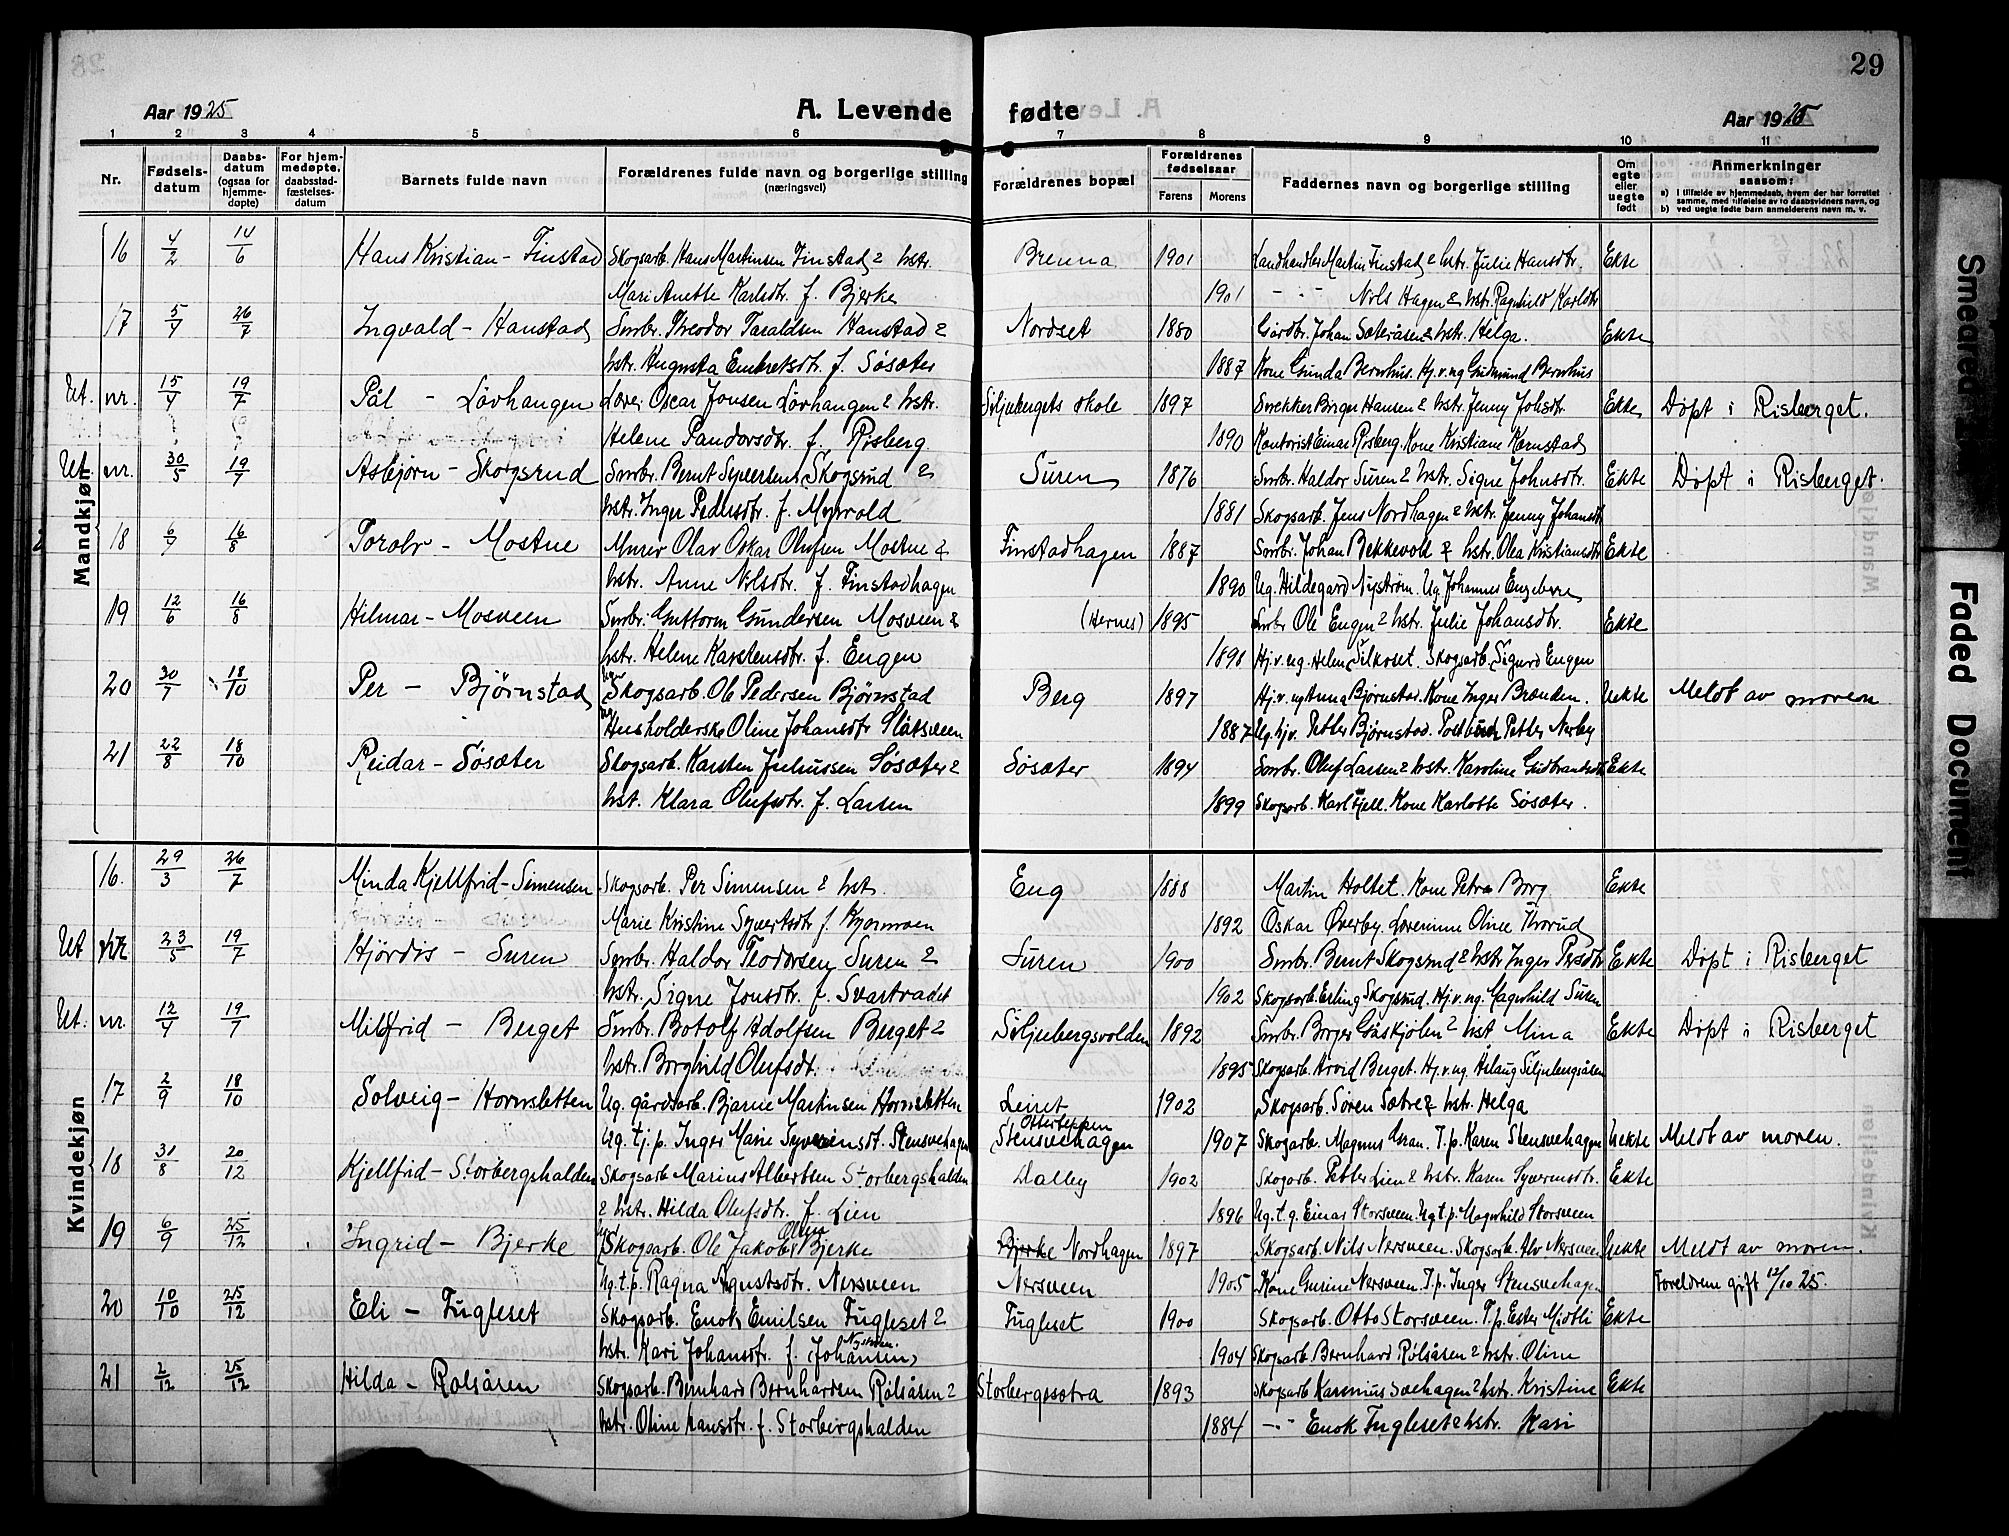 28
29
Aar 1925
A. Levende fødte
Aar 1925
1 2 3 4 5 6 7 8 9 10 11
Nr.
Fødsels-datum
Daabs-datum (ogsaa for hjemme-døpte)
For hjem-medøpte, daabsstad-fæstelses-datum
Barnets fulde navn
Forældrenes fulde navn og borgerlige stilling (næringsvei)
Forældrenes bopæl
Forældrenes fødselsaar
Farens Morens
Faddernes navn og borgerlige stilling
Om egte eller uegte født
Anmerkninger saasom:
a) I tilfælde av hjemmedaab, hvem der har forrettet samme, med tilføielse av to daabsvidners navn, og
b) ved uegte fødte barn anmelderens navn m. v.
Mandkjøn
16 4/2 14/6 Hans Kristian - Finstad Skogsarb. Hans Martinsen Finstad & hstr. Brenna 1901 Landhandler Martin Finstad & hstr. Julie Hansdtr. Ekte
Mari Anette Karlsdtr. f. Bjerke 1901 - " - Nils Hagen & hstr. Ragnhild Karlsdtr
17 5/4 26/7 Ingvald - Hanstad Smbr. Theodor Taraldsen Hanstad & Nordset 1880 Gårdbr. Johan Sæteråsen & hstr. Helga. Ekte
hstr. Augusta Embretsdtr. f. Søsæter 1887 Kone Gunda Bernhus. Hj.v. ug Gudmund Bernhus
Ut. nr. 15/4 19/7 Pål - Løvhaugen Lærer Oscar Jonsen Løvhaugen & hstr. Siljubergets skole 1897 Snekker Birger Hansen & hstr. Jenny Johsdtr. Ekte Døpt i Risberget.
Helene Pandorsdtr. f. Risberg. 1890 Kontorist Einar Risberg. Kone Kristiane Kernstad
Ut. nr. 30/5 19/7 Asbjørn - Skogsrud Smbr. Bernt Syversen Skogsrud & Suren 1876 Smbr. Haldor Suren & hstr. Signe Johnsdtr. Ekte Døpt i Risberget.
hstr. Inger Pedersdtr. f. Myrvold 1881 Skogsarb. Jens Nordhagen & hstr. Jenny Johansdtr
18 6/7 16/8 Torolv - Mostue Murer Olav Oskar Olufsen Mostue & Finstadhagen 1887 Smbr. Johan Bekkevold & hstr. Olea Kristiansdtr Ekte
hstr. Anne Nilsdtr. f. Finstadhagen 1890 Ug. Hildegard Nystrøm. Ug. Johannes Engebern
19 12/6 16/8 Hilmar - Mosveen Smbr. Guttorm Gundersen Mosveen & (Hernes) 1895 Smbr Ole Engen & hstr. Julie Johansdtr. Ekte
hstr. Helene Karstensdtr. f. Engen 1898 Hj.v. ug. Helen Silkoset. Skogsarb. Sigurd Engen
20 30/7 18/10 Per - Bjørnstad Ug. Skogsarb. Ole Pedersen Bjørnstad Berg 1897 Hj.v. ug Anna Bjørnstad. Kone Inger Brænden. Uekte Meldt av moren
Ug Husholderske Oline Johansdtr Slåtsveen 1887 Ug. hjv. Petter Bjørnstad. Postbud Petter Nerby
21 22/8 18/10 Reidar - Søsæter Skogsarb. Karsten Juliussen Søsæter & Søsæter 1894 Smbr. Oluf Larsen & hstr. Karoline Gudbrandsdtr Ekte
hst. Klara Olufsdtr. f. Larsen 1899 Skogsarb. Karl Fjell. Kone Karlotte Søsæter.
Kvindekjøn
16. 29/3 26/7 Minda Kjellfrid - Simensen Skogsarb. Per Simensen & hst. Eng 1888 Martin Holtet. Kone Petra Borg Ekte
Marie Kristine Syvertsdtr. f. Kjernmoen 1892 Oskar Øverby. Lærerinne Oline Thorud
Ut nr. 23/5 19/7 Hjørdis - Suren Smbr. Haldor Teodorsen Suren & Suren 1900 Smbr. Bernt Skogsrud & hstr Inger Pedsdtr Ekte Døpt i Risberget
hstr. Signe Jonsdtr. f. Svartradet 1902 Skogsarb. Erling Skogsrud. Hj.v. ug. Magnhild Suren
Ut. nr. 12/4 19/7 Milfrid - Berget Smbr. Botolf Adolfsen Berget & Siljubergsvolden 1892 Smbr. Borger Gåskjølen & hst Mina Ekte Døpt i Risberget
hstr. Borghild Olufsdt. 1895 Skogsarb. Arvid Berget. Hj.v. ug. Hilaug Siljubergsåsen
17 2/9 18/10 Solveig - Hornsletten Ug. gårdsarb. Bjarne Martinsen Hornsletten Leiret 1902 Skogsarb. Søren Sætre & hstr. Helga
Ug. tj.p. Inger Marie Syversensdt. Stensvehagen Stensvehagen 1907 Skogsarb. Magnus Gran. T.p. Karen Stensvehagen Uekte Meldt av moren.
18 31/8 20/12 Kjellfrid - Storbergshalden Skogsarb Marius Albertsen Storbergshalden Dalby 1902 Skogarb. Petter Lien & hstr. Karen Syversensdtr. Ekte
& hstr. Hilda Olufsdtr. f. Lien 1896 Ug. t.g. Einar Storsveen. Ug t p. Magnhild Storsveen
19 6/9 25/12 Ingrid - Bjerke Ug. Skogsarb. Ole Jakob Olsen Bjerke Bjerke Nordhagen 1897 Skogsarb. Nils Nersveen. Skogsarb. Alv Nersveen Uekte Meldt av moren.
Ug. t.p. Ragna Agustsdtr. Nersveen Nersveen 1905 Kone Gurine Nersveen T.p. Inger Stensvehagen Foreldrene gift 12/10 25.
20 10/10 25/12 Eli - Fugleset Skogsarb. Enok Emilsen Fugleset & Fugleset 1900 Skogsarb. Otto Storsveen. T.p. Ester Midtli Ekte
hstr. Kari Johansdtr. f. (Johansen) 1904 Skogsarb Bernhard Rølsåsen & hstr. Oline
21 2/12 25/12 Hilda - Rølsåsen Skogsarb. Bernhard Bernhardsen Rølsåsen & Storbergssætra 1893 Skogsarb Rasmus Sæhagen & hstr. Kristine Ekte
hstr. Oline Hansdtr. f. Storbergshalden 1884 - " - Enok Fugleset & hstr. Kari
Faded Document